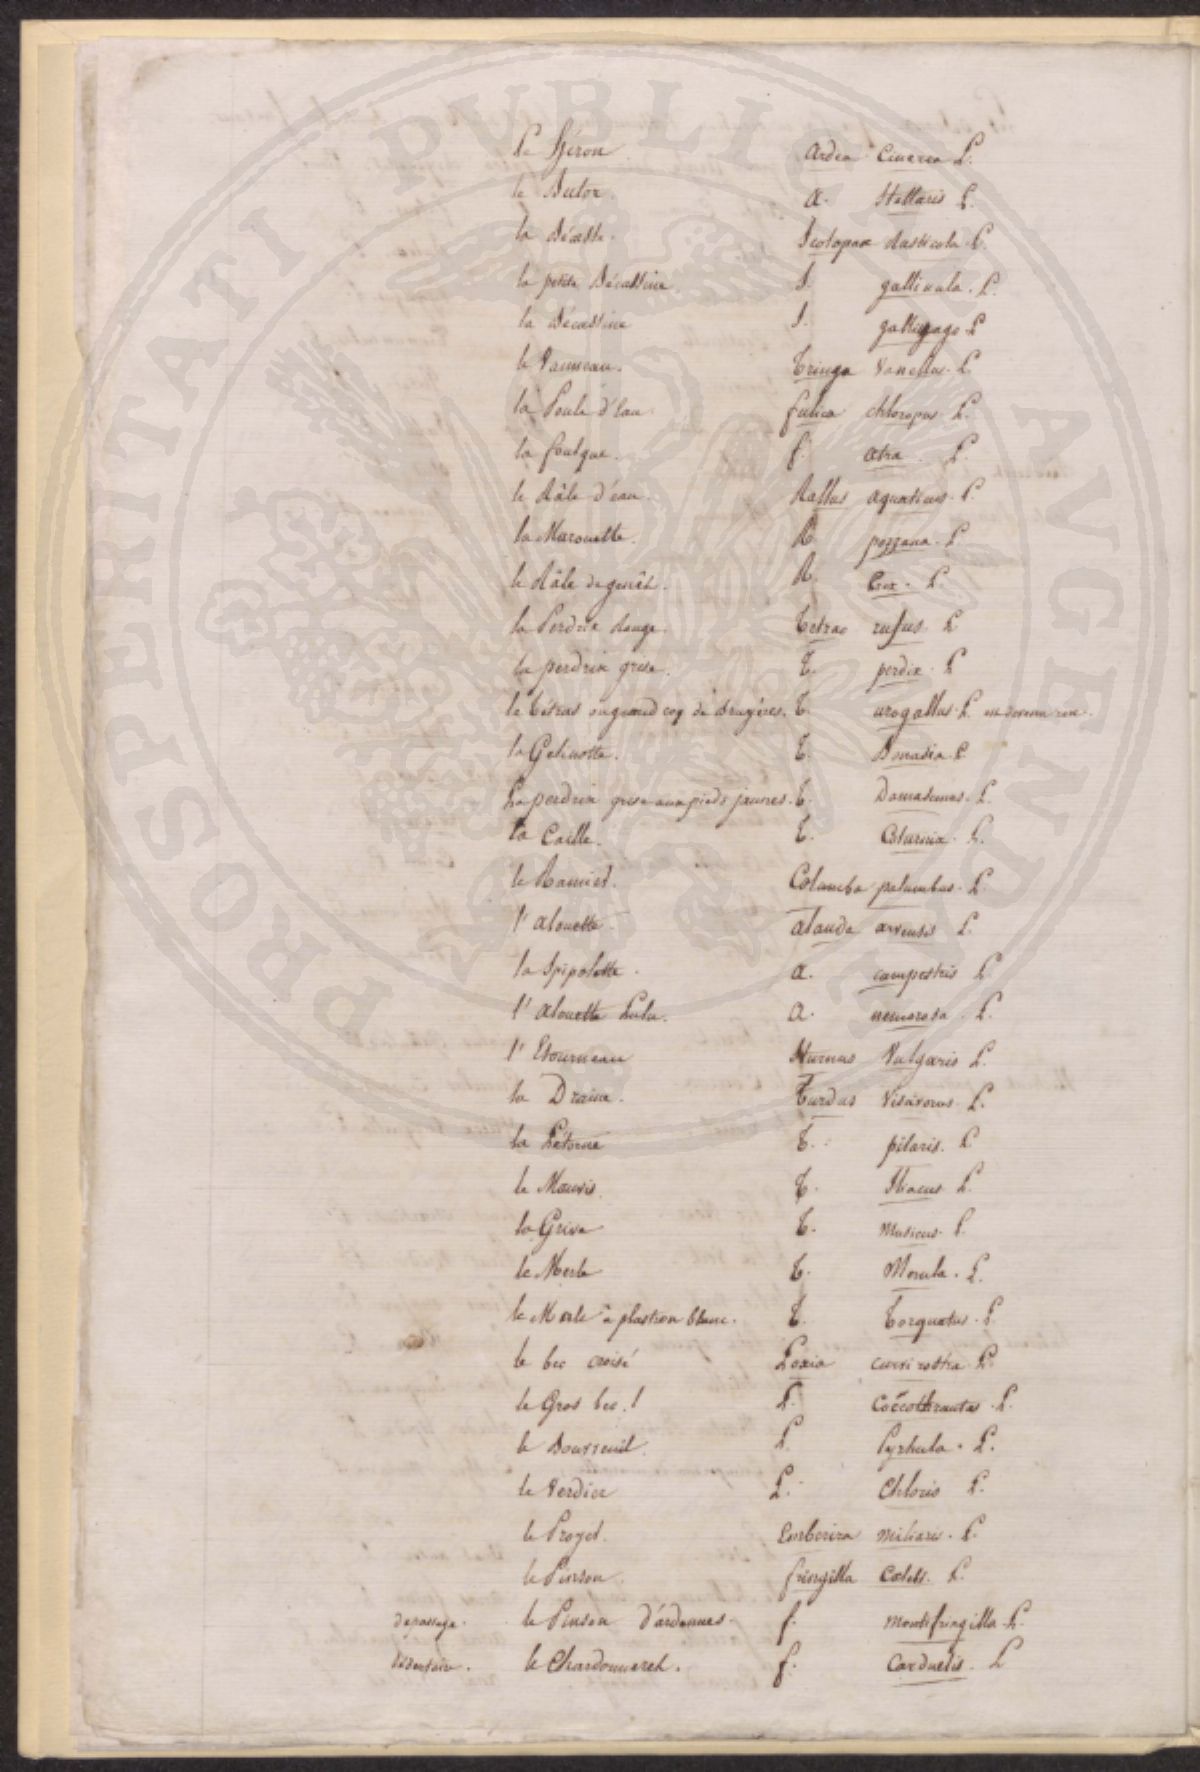 PROSPERITATI PUBLICAE AUGENDAE
le Héron ardea cinerea L.
le Butor. a. Stellaris L.
la Bécasse. Scolopax Rusticola L.
la petite Bécassine S. gallinula. L.
la Bécassine S. gallinago L
le Vanneau. Tringa Vanellus. L
la Poule d'Eau fulica chloropus L.
la foulque. f. atra L.
le Râle d'eau. Rallus aquaticus. L
la Marouette. R pozzana. L
le Râle de genêt. R Crex. L.
la Perdrix Rouge. Tetrao rufus L
la perdrix grise. T. perdix. L
le tétras ou grand coq de bruyères. T. urogallus. L. en devenu rare.
la Gelinotte. T. Bonasia L
La perdrix grise aux pieds jaunes. T. Damascenus. L.
la Caille. T. Coturnix. L.
le Ramier. Columba palumbus. L
l'alouette. alauda arvensis L.
la Spipolette. a. campestris L
l'alouette Lulu. a. nemorosa. L.
l'Etourneau Sturnus Vulgaris L.
la Draine. Turdus Viscivorus L.
la Litorne T. pilaris. L
le Mauvis. T. Iliacus L.
la Grive T. Musicus. L.
le Merle T. Merula. L.
le Merle à plastron blanc. T. Torquatus. L
le bec croisé Loxia curvirostra L.
le Gros bec. ! L. Coccothraustes. L.
le Bouvreuil. L Pyrhula. L.
le Verdier L. Chloris L.
le Proyer. Emberiza miliaris. L.
le Pinson. fringilla Coelebs. L.
de passage. le Pinson d'ardennes. f. Montifringilla. L.
sédentaire. le Chardonneret. f. Carduelis. L